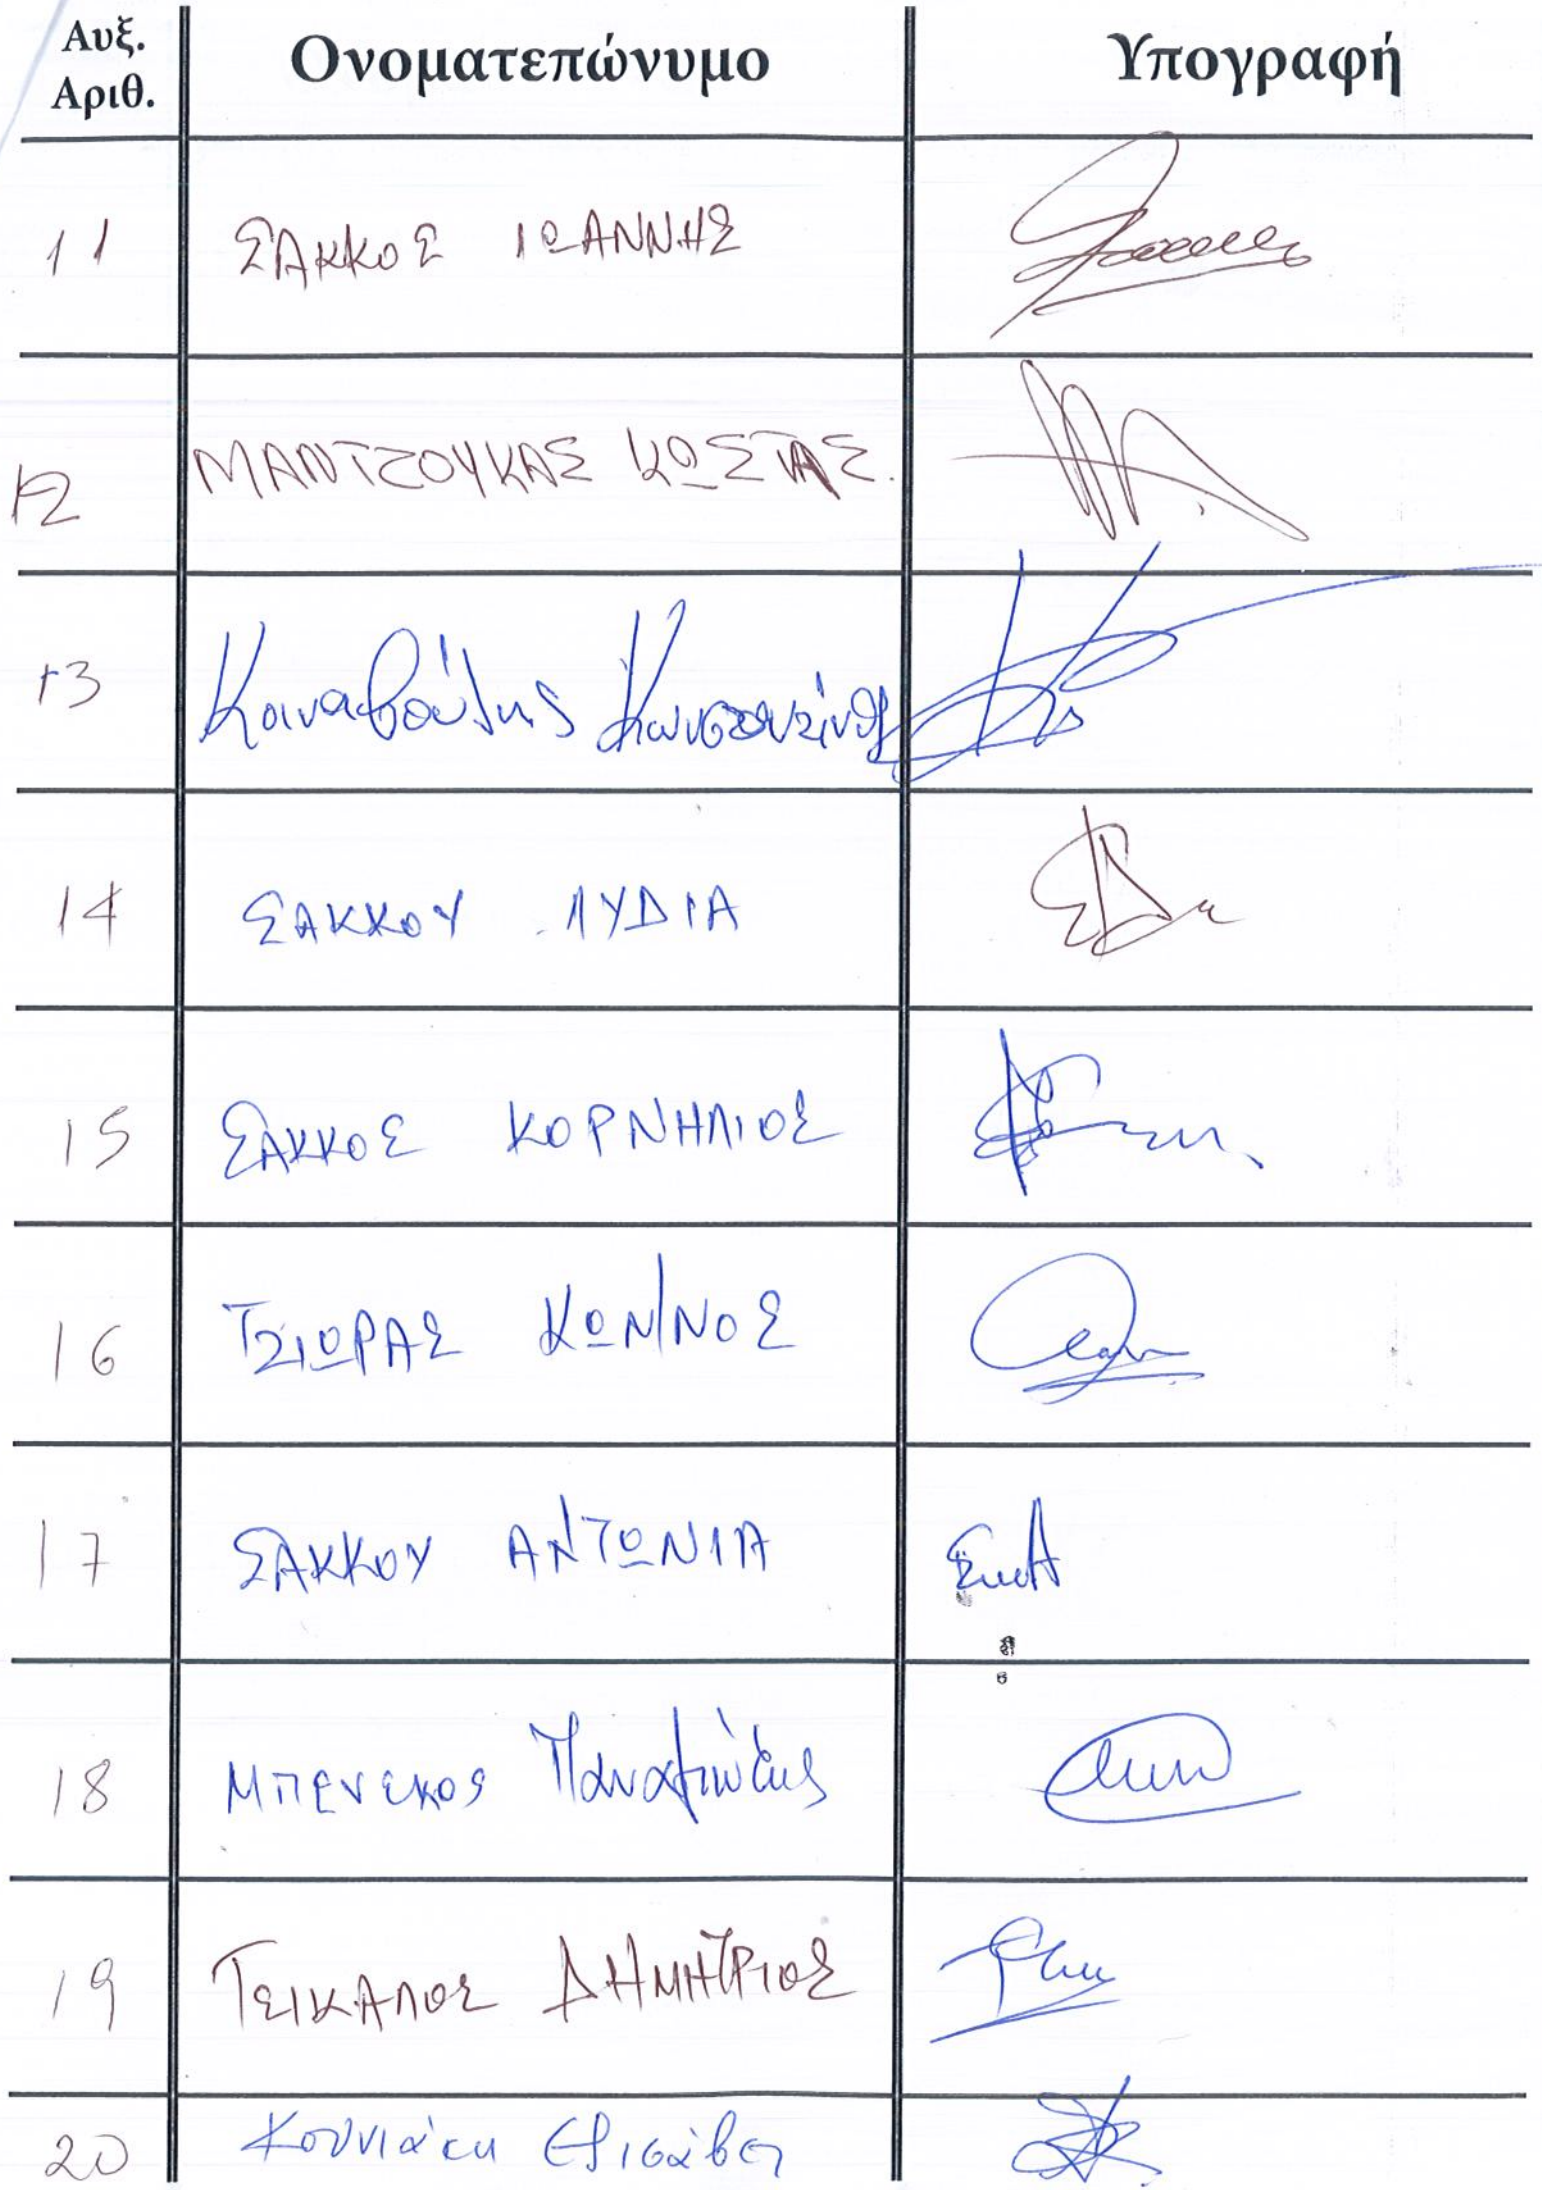 Αυξ. Αριθ. Ονοματεπώνυμο Υπογραφή
11 ΣΑΚΚΟΣ ΙΩΑΝΝΗΣ
12 ΜΑΝΤΖΟΥΚΑΣ ΚΩΣΤΑΣ.
13
14 ΣΑΚΚΟΥ ΛΥΔΙΑ
15 ΣΑΚΚΟΣ ΚΟΡΝΗΛΙΟΣ
16 ΤΣΙΩΡΑΣ ΚΩΝ/ΝΟΣ
17 ΣΑΚΚΟΥ ΑΝΤΩΝΙΑ
18 ΜΠΕΝΕΚΟΣ Παναγιώτης
19 ΤΣΙΚΑΛΟΣ ΔΗΜΗΤΡΙΟΣ
20 Κουνιάκη Ελισάβετ